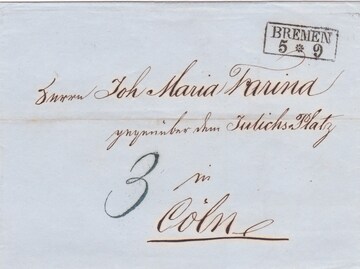 BREMEN
5 * 9
Herrn Joh Maria Farina
gegenüber dem Julichs-Platz
3
in
Cöln